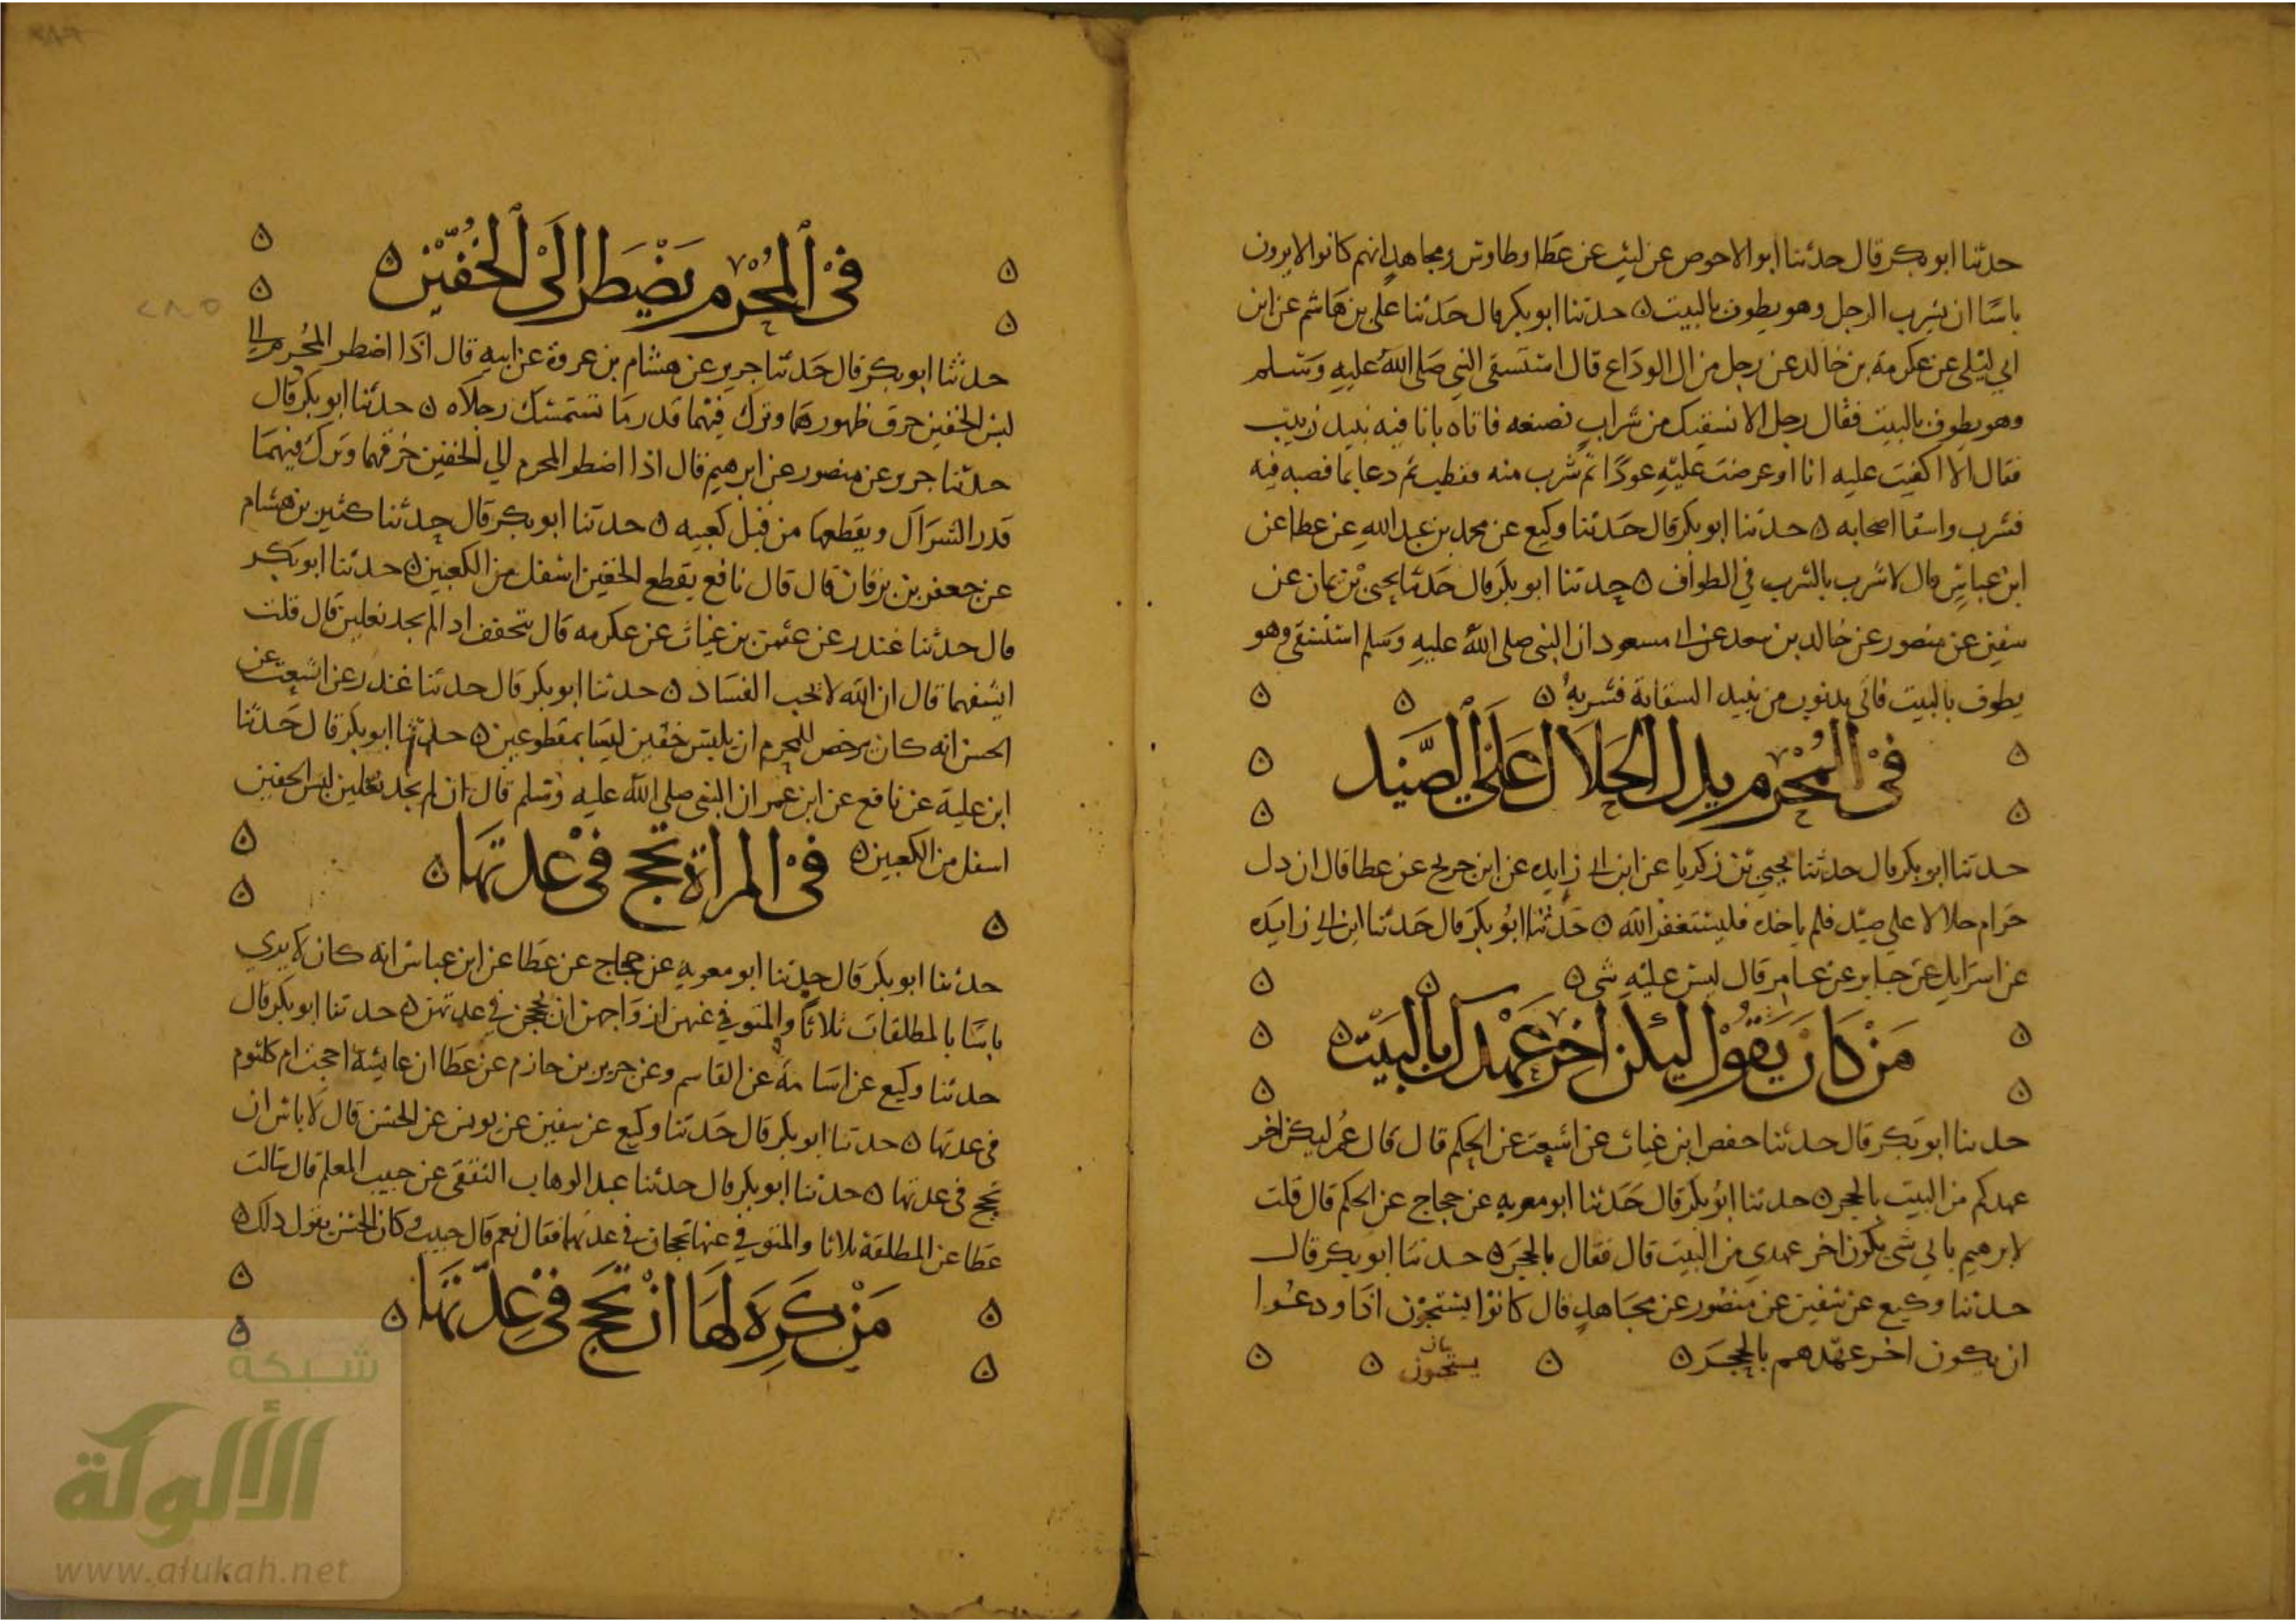 حدثنا ابو بكر قال حدثنا ابو الاحوص عن ليث عن عطا وطاوس ومجاهد انهم كانوا لا يرون
باسا ان يشرب الرجل وهو يطوف بالبيت ه حدثنا ابو بكر قال حدثنا علي بن هاشم عن ابن
ابي ليلى عن عكرمة بن خالد عن رجل من ال الوداع قال استسقى النبي صلى الله عليه وسلم
وهو يطوف بالبيت فقال رجل الا نسقيك من شراب نصنعه فاتاه بانا فيه نبيذ زبيب
فقال الا اكفيت عليه انا او عرضت عليه عودا ثم شرب منه فقطب ثم دعا بما فصبه فيه
فشرب واسقا اصحابه ه حدثنا ابو بكر قال حدثنا وكيع عن محمد بن عبد الله عن عطا عن
ابن عباس قال لا شرب بالشرب في الطواف ه حدثنا ابو بكر قال حدثنا يحيى بن يمان عن
سفين عن منصور عن خالد بن سعد عن ابي مسعود ان النبي صلى الله عليه وسلم استسقى وهو
يطوف بالبيت فاتي بذنوب من نبيذ السقاية فشربه ه ه ه
في المحرم يدل الحلال على الصيد
حدثنا ابو بكر قال حدثنا يحيى بن زكريا عن ابن ابي زايده عن ابن جريج عن عطا قال ان دل
حرام حلالا على صيد فلم ياخذه فليستغفر الله ه حدثنا ابو بكر قال حدثنا ابن ابي زايده
عن اسرايل عن جابر عن عامر قال ليس عليه شي ه
من كان يقول ليكن اخر عهدك بالبيت ه
حدثنا ابو بكر قال حدثنا حفص ابن غياث عن اشعث عن الحكم قال قال عمر ليكن اخر
عهدكم من البيت بالحجر ه حدثنا ابو بكر قال حدثنا ابو معوية عن حجاج عن الحكم قال قلت
لابرهيم باي شي يكون اخر عهدي من البيت قال فقال بالحجر ه حدثنا ابو بكر قال
حدثنا وكيع عن سفين عن منصور عن مجاهد قال كانوا يستحبون اذا ودعوا
ان يكون اخر عهدهم بالحجر ه ه يستحبون ه ه
بيان
في المحرم يضطر الى الخفين ه
حدثنا ابو بكر قال حدثنا جرير عن هشام بن عروة عن ابيه قال اذا اضطر المحرم الى
لبس الخفين خرق ظهورهما وترك فيهما قدر ما تستمسك رجلاه ه حدثنا ابو بكر قال
حدثنا جرير عن منصور عن ابرهيم قال اذا اضطر المحرم الي الخفين خرقهما وترك فيهما
قدر الشراك ويقطعهما من قبل كعبيه ه حدثنا ابو بكر قال حدثنا كثير بن هشام
عن جعفر بن برقان قال قال نافع يقطع الخفين اسفل من الكعبين ه حدثنا ابو بكر
قال حدثنا غندر عن عثمن بن غياث عن عكرمه قال يتخفف اذا لم يجد نعلين قال قلت
ايشقهما قال ان الله لا يحب الفساد ه حدثنا ابو بكر قال حدثنا غندر عن اشعث عن
الحسن انه كان يرخص للمحرم ان يلبس خفين ليسا بمقطوعين ه حدثنا ابو بكر قال حدثنا
ابن علية عن نافع عن ابن عمر ان النبي صلى الله عليه وسلم قال ان لم يجد نعلين لبس الخفين
اسفل من الكعبين ه في المراة تحج في عدتها ه
حدثنا ابو بكر قال حدثنا ابو معوية عن حجاج عن عطا عن ابن عباس انه كان لا يري
باسا بالمطلقات ثلاثا والمتوفي عنهن ازواجهن ان يحججن في عدتهن ه حدثنا ابو بكر قال
حدثنا وكيع عن اسامة عن القاسم وعن جرير بن حازم عن عطا ان عايشة احجت ام كلثوم
في عدتها ه حدثنا ابو بكر قال حدثنا وكيع عن سفين عن يونس عن الحسن قال لا باس ان
تحج في عدتها ه حدثنا ابو بكر قال حدثنا عبد الوهاب الثقفي عن حبيب المعلم قال سالت
عطا عن المطلقة ثلاثا والمتوفي عنها تحجان في عدتهما فقال نعم قال حبيب وكان الحسن يقول ذلك ه
من كره لها ان تحج في عدتها ه
٢٨٥
شبكة
الألوكة
www.alukah.net